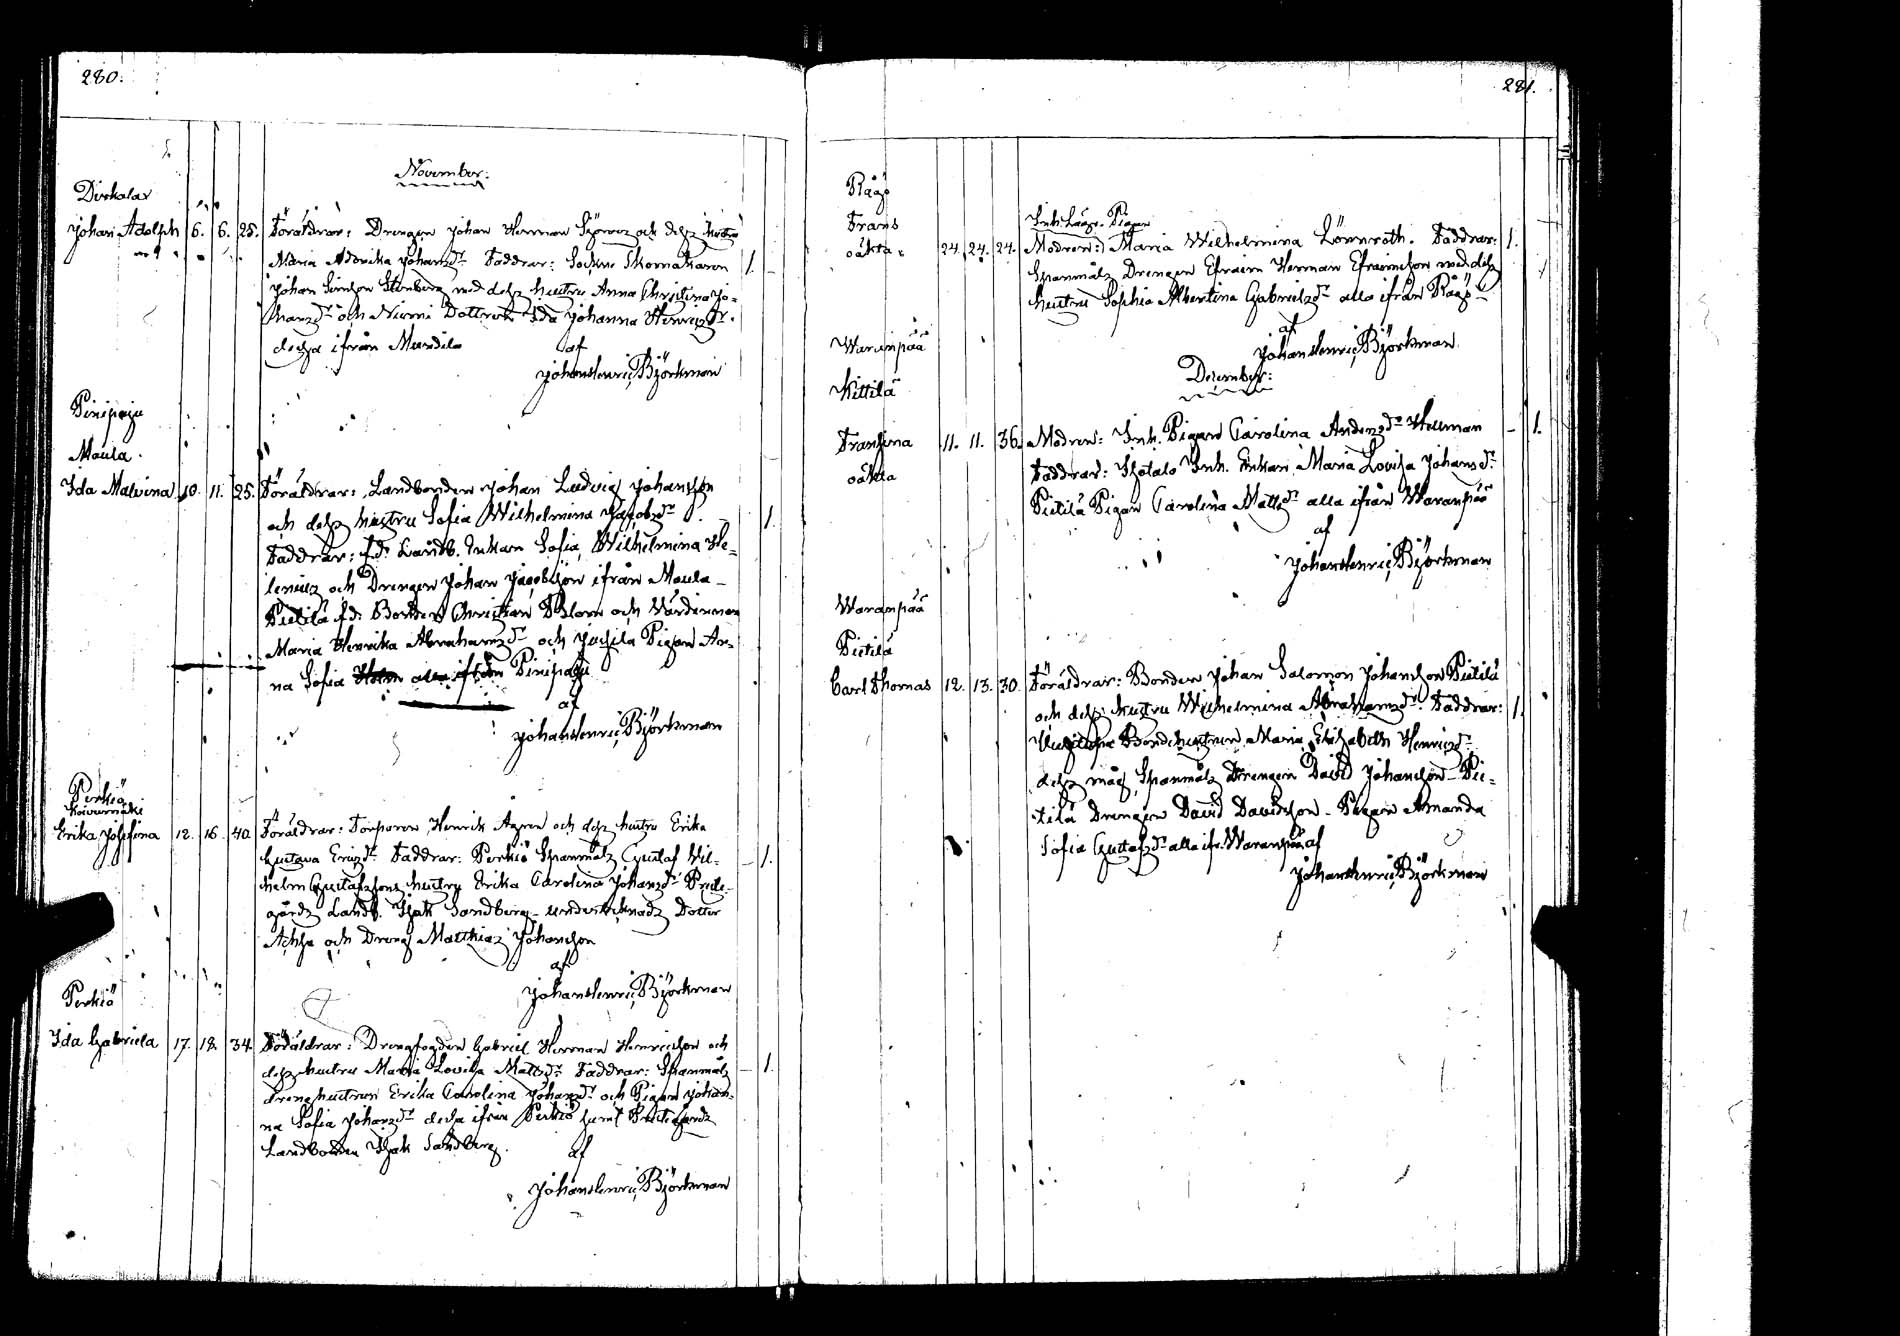 280.
November:
Dirkalax
Johan Adolph 6. 6. 25. Föräldrar: Drengen Johan Herman Sjöroos och dess hustru
Maria Adovika Johansdr. Faddrar: Sockne Skomakaren 1.
Johan Simson Stenberg med dess hustru Anna Christina Jo-
hansdr och Niemi Dottren Ida Johanna Henricsdr.
dessa ifrån Mundila
af
Johan Henric Björkman
Pinipaju
Maula.
Ida Malvina 10. 11. 25. Föräldrar: Landbonden Johan Ludvig Johansson
och dess hustru Sofia Wilhelmina Jacobsdr. - 1.
Faddrar: f.d. Landb. Enkan Sofia Wilhelmina He-
lenius och Drengen Johan Jacobsson ifrån Maula -
Pietilä f.d. Bonden Christian Blom och Värdinnan
Maria Henrika Abrahamsdr och Jussila Pigan An-
na Sofia Holm alla ifrån Pinipaju
af
Johan Henric Björkman
Perkiö
Koivumäki
Erika Josefina 12. 16. 40. Föräldrar: Torparen Henrik Agren och dess hustru Erika
Gustava Ericsdr. Faddrar: Perkiö Spanmåls Gustaf Wil- - 1.
helm Gustafssons hustru Erika Carolina Johansdr Preste-
gårds Landb. Isak Sandberg - undertecknads Dotter
och Dreng Matthias Johansson
af
Johan Henric Björkman
Perkiö
Ida Gabriela 17. 18. 34. Föräldrar: Drengfogden Gabriel Herman Henricsson och
dess hustru Maria Lovisa Mattsdr. Faddrar: Spanmåls - 1.
drenghustrun Erika Carolina Johansdr och Pigan Johan-
na Sofia Johansdr dessa ifrån Perkiö samt Prestegårds
Landbonden Isak Sandberg.
af
Johan Henric Björkman
281.
Rågö
Frans Inh. Lägo. Pigan
oäkta 24. 24. 24. Modren: Maria Wilhelmina Lönnroth. Faddrar: 1.
Spanmåls Drengen Efraim Herman Efraimsson med dess
hustru Sophia Albertina Gabrielsdr alla ifrån Rågö -
af
Johan Henric Björkman
December:
Waranpää
Kittilä
Fransina 11. 11. 36. Modren: Inh. Pigan Carolina Andersdr Hellman - 1.
oäkta Faddrar: Isotalo Inh. Enkan Maria Lovisa Johansdr.
Pietilä Pigan Carolina Mattsdr alla ifrån Waranpää
af
Johan Henric Björkman
Waranpää
Pietilä
Carl Thomas 12. 13. 30. Föräldrar: Bonden Johan Salomon Johansson Pietilä
och dess hustru Wilhelmina Abrahamsdr. Faddrar: 1.
Bondehustrun Maria Elisabeth Henricsdr.
dess måg Spanmåls Drengen David Johansson - Pie-
tilä Drengen David Davidsson - Pigan Amanda
Sofia Gustafsdr alla ifr. Waranpää af
Johan Henric Björkman